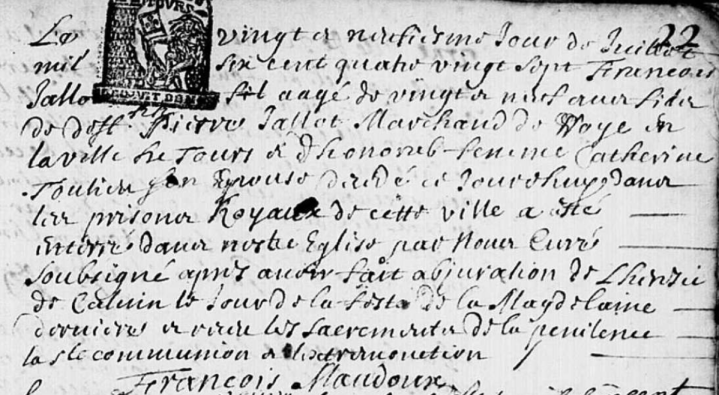 22
TOURS
Le vingt et neufiesme Jour de Juillet
mil six cent quatre vingt sept Francois
Jallot aagé de vingt et neuf ans filz
de deff. Pierre Jallot Marchand de Soye en
la ville de Tours & d'honorab femme Catherine
son Epouse decedé ce Jourdhuy dans
les prisons Royaux de cette ville a été
enterré dans nostre Eglise par Nous Curé
soubsigné apres avoir fait abjuration de Lheresie
de Calvin le Jour de la feste de la Magdelaine
derniere et receu les sacrements de la penitence
la ste communion & lextremonction
Francois Maudoux